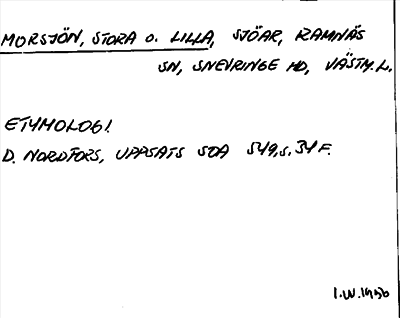 MORSJÖN, STORA O. LILLA, SJÖAR, RAMNÄS
SN, SNEVRINGE HD, VÄSTM. L.
ETYMOLOGI.
D. NORDFORS, UPPSATS SOA 549, S. 34 F.
I.W.